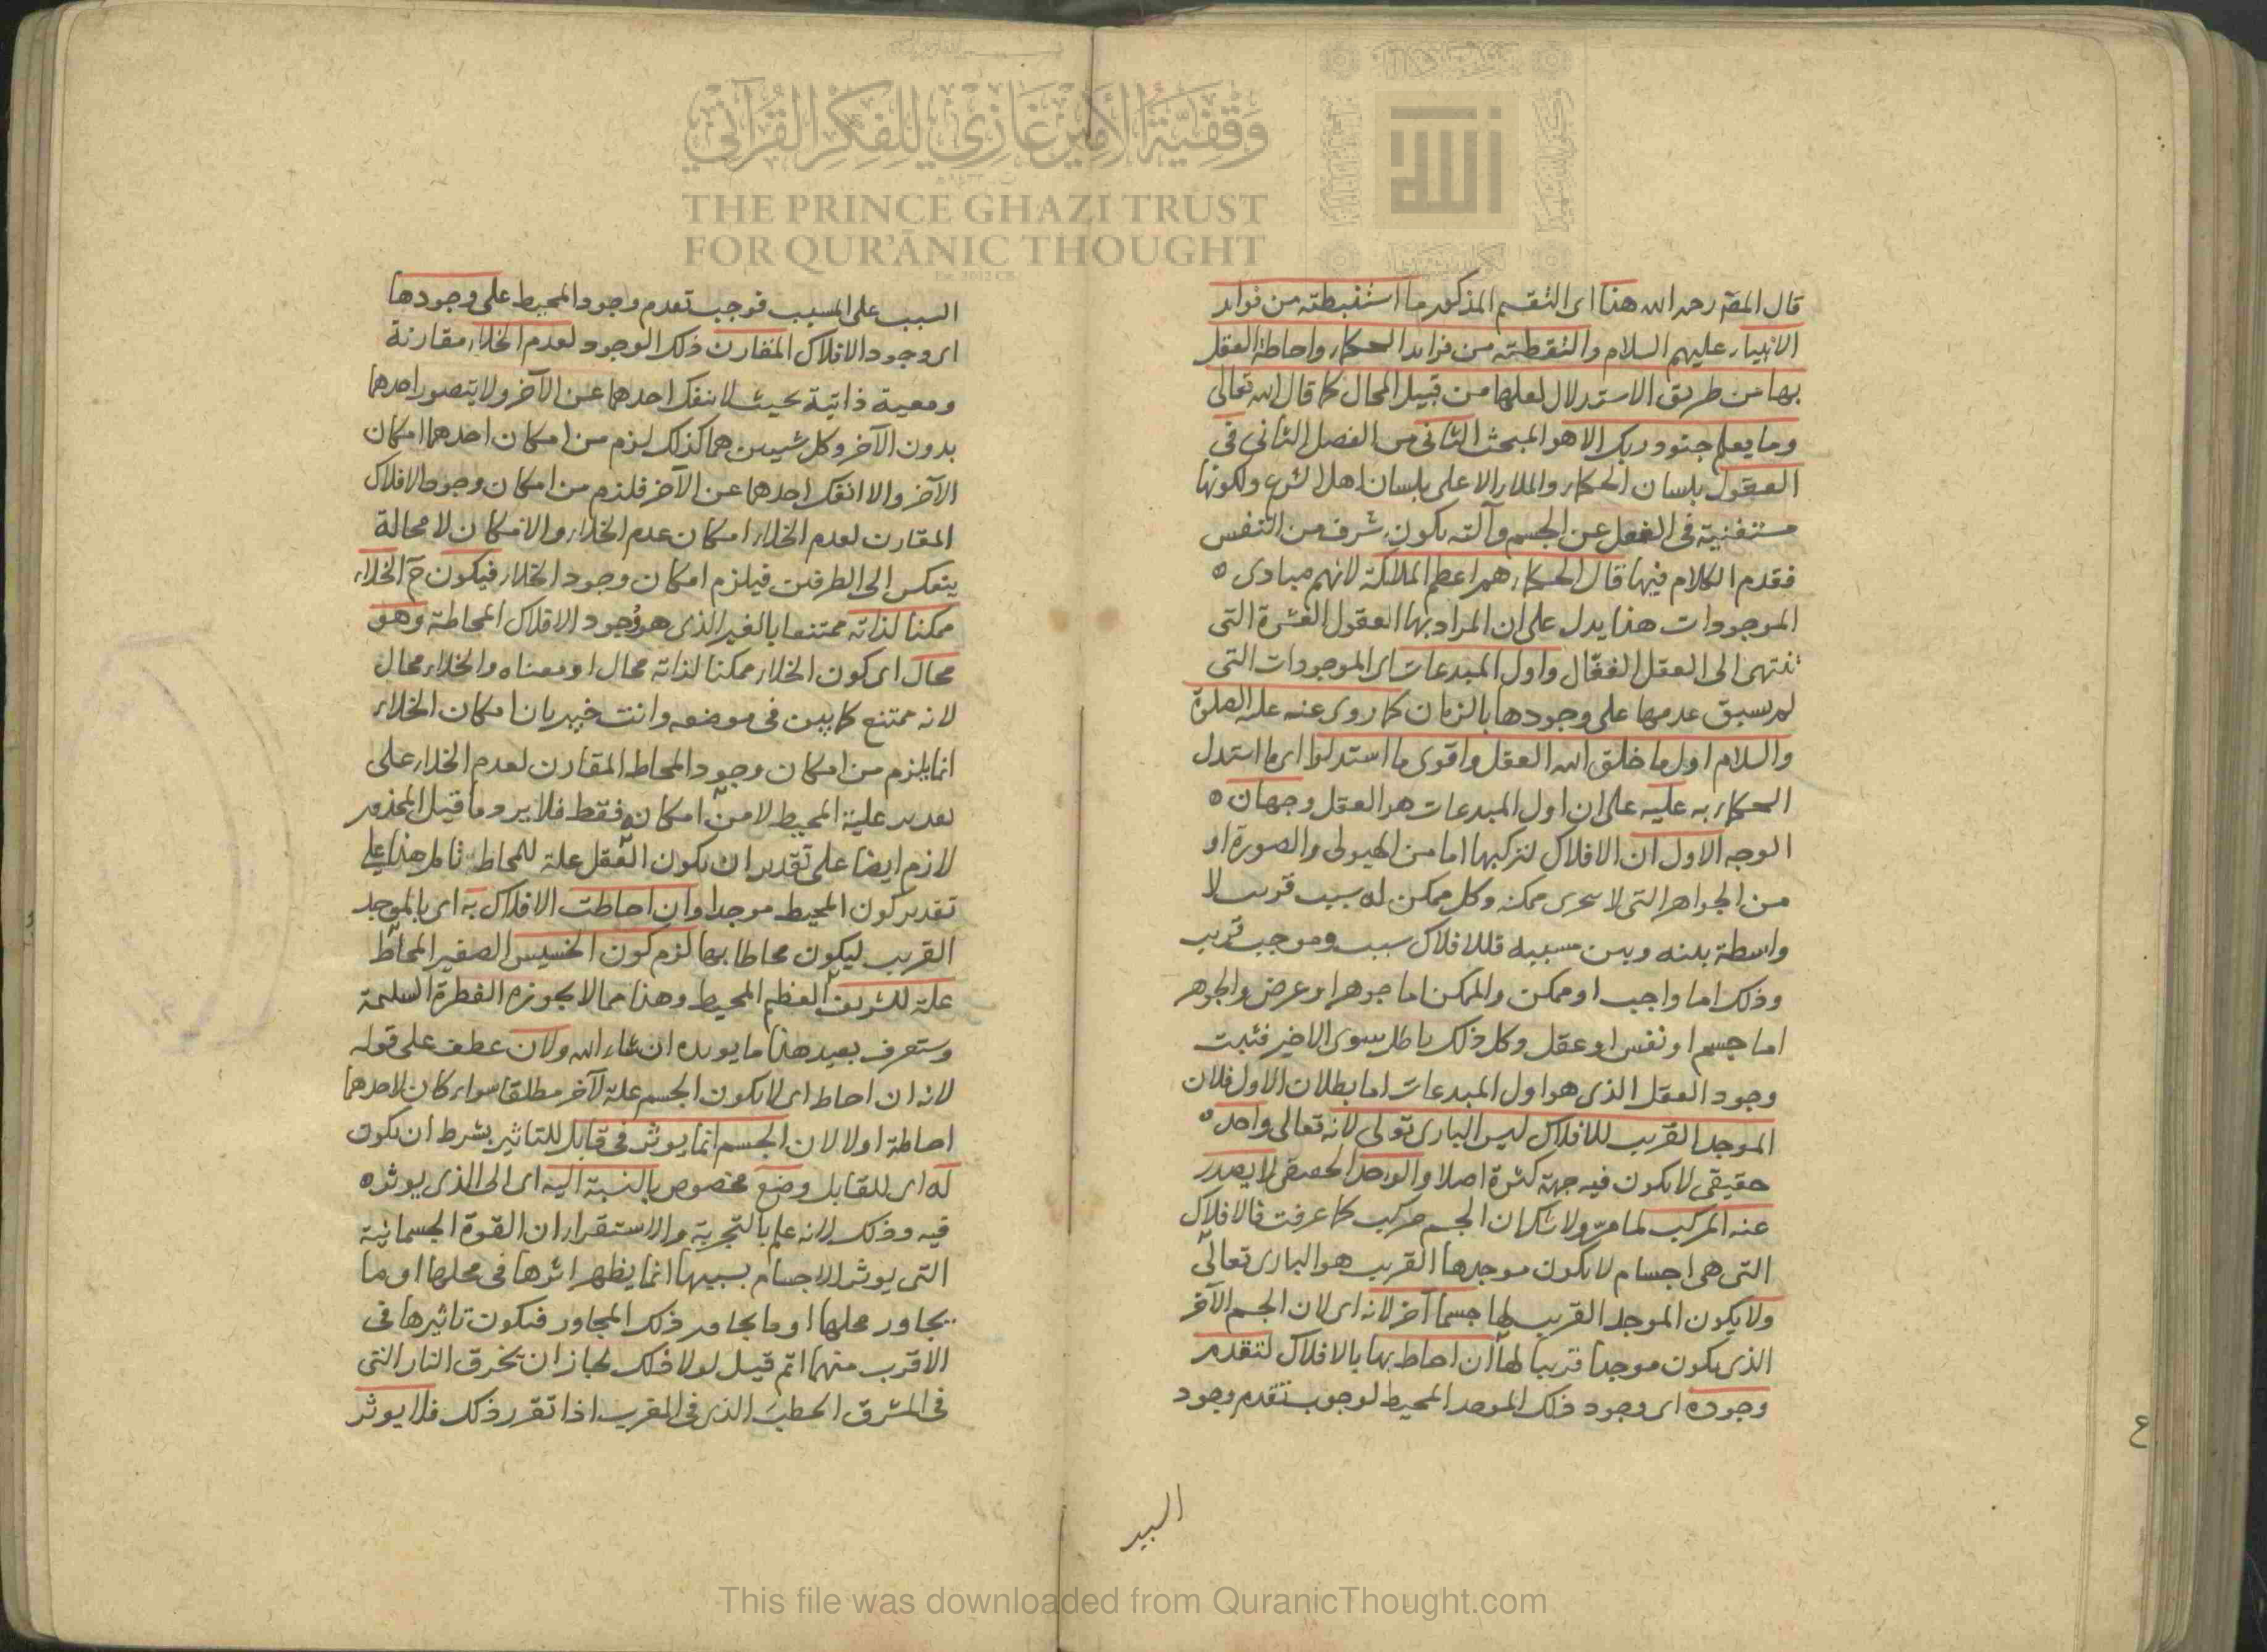 وقفية الأمير غازي للفكر القرآني
THE PRINCE GHAZI TRUST
FOR QUR'ĀNIC THOUGHT
قال المصَ رحمه الله هذا اى التقسيم المذكور ما استنبطته من فوايد
الانبياء عليهم السلام والتقطته من فرايد الحكماء واحاطة العقل
بها من طريق الاستدلال لعلها من قبيل المحال كما قال الله تعالى
وما يعلم جنود ربك الا هو المبحث الثانى من الفصل الثانى فى
العقول بلسان الحكماء والملاء الاعلى بلسان اهل الشرع ولكونها
مستغنية فى الفعل عن الجسم وآلته يكون شرف من النفس
فقدم الكلام فيها قال الحكماء هم اعظم الملائكة لانهم مبادى ه
الموجودات هذا يدل على ان المراد بها العقول العشرة التى
تنتهى الى العقل الفعّال واول المبدعات اى الموجودات التى
لم يسبق عدمها على وجودها بالزمان كما روى عنه عليه الصلوة
والسلام اول ما خلق الله العقل واقوى ما استدلوا اى ما استدل
الحكماء به عليه على ان اول المبدعات هو العقل وجهان ه
الوجه الاول ان الافلاك لتركبها اما من الهيولى والصورة او
من الجواهر التى لا تتجزى ممكنه وكل ممكن له سبب قريب لا
واسطة بينه وبين مسببه فللافلاك سبب وموجب قريب
وذلك اما واجب او ممكن والممكن اما جوهر او عرض والجوهر
اما جسم او نفس او عقل وكل ذلك باطل سوى الاخير فثبت
وجود العقل الذى هو اول المبدعات اما بطلان الاول فلان
الموجد القريب للافلاك ليس البارى تعالى لانه تعالى واحد ه
حقيقى لا يكون فيه جهة كثرة اصلا والواحد الحقيقى لا يصدر
عنه المركب لما مرّ ولا شك ان الجسم مركب كما عرفت فالافلاك
التى هى اجسام لا يكون موجدها القريب هو البارى تعالى
ولا يكون الموجد القريب لها جسما آخر لانه اى لان الجسم الآخر
الذى يكون موجدا قريبا لها ان احاط بها بالافلاك لتقدم
وجوده اى وجود ذلك الموجد المحيط لوجوب تقدم وجود
السبب
السبب على المسبب فوجب تقدم وجود المحيط على وجودها
اى وجود الافلاك المقارن ذلك الوجود لعدم الخلاء مقارنة
ومعية ذاتية بحيث لا ينفك احدهما عن الآخر ولا يتصور احدهما
بدون الآخر وكل شيئين هما كذلك لزم من امكان احدهما امكان
الآخر والا انفك احدهما عن الآخر فلزم من امكان وجود الافلاك
المقارن لعدم الخلاء امكان عدم الخلاء والامكان لا محالة
ينعكس الى الطرفين فيلزم امكان وجود الخلاء فيكون حَ الخلاء
ممكنا لذاته ممتنعا بالغير الذى هو وجود الافلاك المحاطة وهو
محال اى كون الخلاء ممكنا لذاته محال او معناه والخلاء محال
لانه ممتنع كما يبين فى موضعه وانت خبير بان امكان الخلاء
انما يلزم من امكان وجود المحاط المقارن لعدم الخلاء على
تقدير علية المحيط لا من امكانه فقط فلا يرد ما قيل المحذور
لازم ايضا على تقدير ان يكون العقل علة للمحاط تامل هذا على
تقدير كون المحيط موجدا وان احاطت الافلاك به اى بالموجد
القريب ليكون محاطا بها لزم كون الخسيس الصغير المحاط
علة للشريف العظيم المحيط وهذا مما لا يجوزه الفطرة السليمة
وستعرف بعيد هذا ما يويده ان شاء الله ولان عطف على قوله
لانه ان احاط اى لا يكون الجسم علة لآخر مطلقا سواء كان لاحدهما
احاطة اولا لان الجسم انما يوثر فى قابل للتاثير بشرط ان يكون
له اى للقابل وضع مخصوص بالنسبة اليه اى الى الذى يوثر ه
فيه وذلك لانه علم بالتجربة والاستقراء ان القوة الجسمانية
التى يوثر الاجسام بسببها انما يظهر اثرها فى محلها او ما
يجاور محلها او ما يجاور ذلك المجاور فيكون تاثيرها فى
الاقرب منهما اتم قيل لولا ذلك لجاز ان تحرق النار التى
فى المشرق الحطب الذى فى المغرب اذا تقرر ذلك فلا يوثر
ع
This file was downloaded from QuranicThought.com